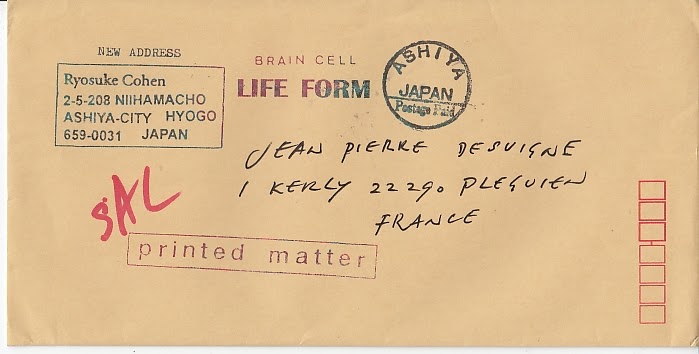 NEW ADDRESS
Ryosuke Cohen
2-5-208 NIIHAMACHO
ASHIYA-CITY HYOGO
659-0031 JAPAN
BRAIN CELL
LIFE FORM
ASHIYA
JAPAN
Postage Paid
JEAN PIERRE DESVIGNE
1 KERLY 22290 PLEGUIEN
FRANCE
SAL
printed matter